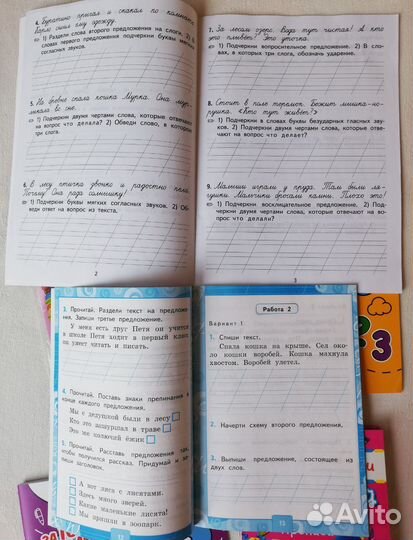 4. Буратино прыгал и скакал по комнате.
Карло сшил ему одежду.
1) Раздели слова второго предложения на слоги. 2) В
словах первого предложения подчеркни буквы мягких
согласных звуков.
5. На бревне спала кошка Мурка. Она
во сне.
1) Подчеркни двумя чертами слово, которое отвечает
на вопрос что делала? 2) Обведи слово, в котором
три слога.
6. В лесу птичка звонко и радостно пела.
Почему? Она рада солнышку!
1) Подчеркни буквы мягких согласных звуков. 2) Обведи
ответ на вопрос из текста.
2
7. За лесом озеро. Вода тут чистая! А кто
это плывёт? Это уточка.
1) Подчеркни вопросительное предложение. 2) В сло-
вах, в которых три слога, обозначь ударение.
8. Стоит в поле теремок. Бежит мышка-но-
рушка. «Кто тут живёт?»
1) Подчеркни в словах буквы безударных гласных зву-
ков. 2) Подчеркни двумя чертами слова, которые отве-
чают на вопрос что делает?
9. Малыши играли у пруда. Там были ля-
гушки. Мальчики бросали камни. Плохо это!
1) Подчеркни восклицательное предложение. 2) Под-
черкни двумя чертами слова, которые отвечают на во-
прос что делали?
3
3. Прочитай. Раздели текст на предложе-
ния. Запиши третье предложение.
У меня есть друг Петя он учится
в школе Петя ходит в первый класс
он умеет читать и писать.
4. Прочитай. Поставь знаки препинания в
конце каждого предложения.
Мы с дедушкой были в лесу
Кто это зашуршал в траве
Это же колючий ёжик
5. Прочитай. Расставь предложения так,
чтобы получился рассказ. Придумай и за-
пиши заголовок.
А вот лиса с лисятами.
Здесь много зверей.
Какие маленькие лисята!
Мы пришли в зоопарк.
12
Работа 2
Вариант 1
1. Спиши текст.
Спала кошка на крыше. Сел око-
ло кошки воробей. Кошка махнула
хвостом. Воробей улетел.
2. Начерти схему второго предложения.
3. Выпиши предложение, состоящее из
двух слов.
13
2
3
Avito